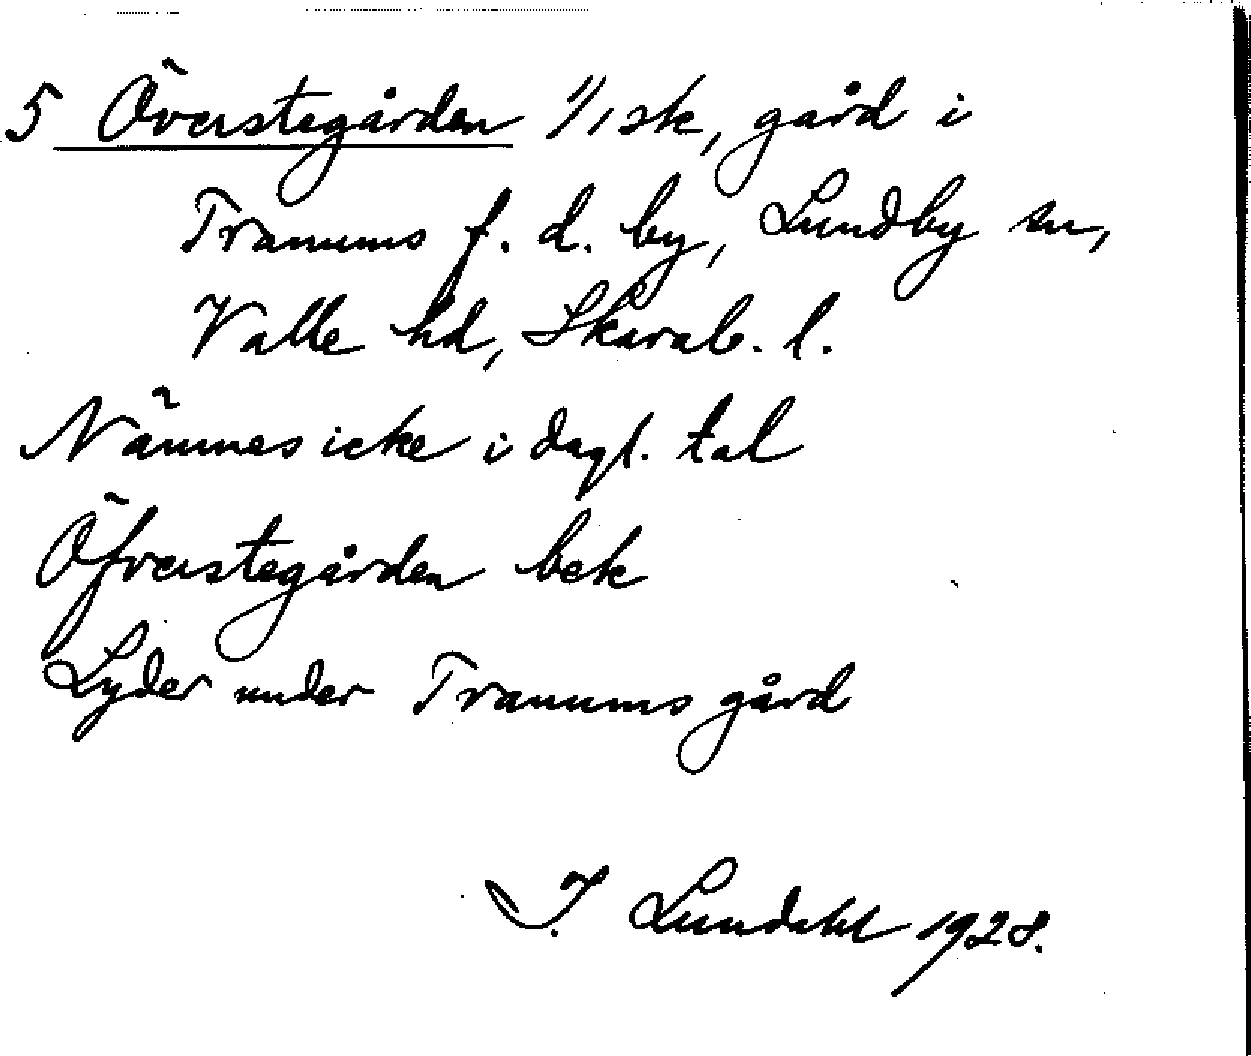 5 Överstegården 1/1 sk, gård i
Tranums f. d. by, Lundby sn,
Valle hd, Skarab. l.
Nämnes icke i dagl. tal
Öfverstegården bek
Lyder under Tranums gård
I. Lundahl 1928.